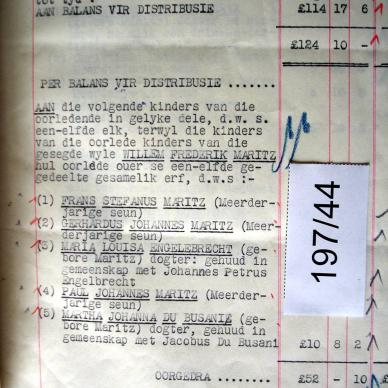 tot tyd :
AAN BALANS VIR DISTRIBUSIE £114 17 6
£124 10 -
PER BALANS VIR DISTRIBUSIE .......
AAN die volgende kinders van die
oorledende in gelyke dele, d.w. s.
een-elfde elk, terwyl die kinders
van die oorlede kinders van die
gesegde wyle WILLEM FREDERIK MARITZ
hul oorlede ouer se een-elfde ge-
gedeelte gesamelik erf, d.w.s :-
(1) FRANS STEFANUS MARITZ (Meerder-
jarige seun)
(2) GERHARDUS JOHANNES MARITZ (Meer-
derjarige seun)
(3) MARIA LOUISA ENGELEBRECHT (ge-
bore Maritz) dogter: gehuud in
gemeenskap met Johannes Petrus
Engelbrecht
(4) PAUL JOHANNES MARITZ (Meerder-
jarige seun)
(5) MARTHA JOHANNA DU BUSANIE (ge-
bore Maritz) dogter, gehuud in
gemeenskap met Jacobus Du Busani £10 8 2
OORGEDRA ....... £52 - 10
197/44